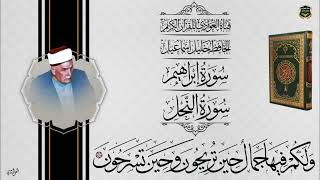 قناة العوادي للقرآن الكريم
الحافظ خليل إسماعيل
سورة إبراهيم
سورة النحل
ولكم فيها جمال حين تريحون وحين تسرحون